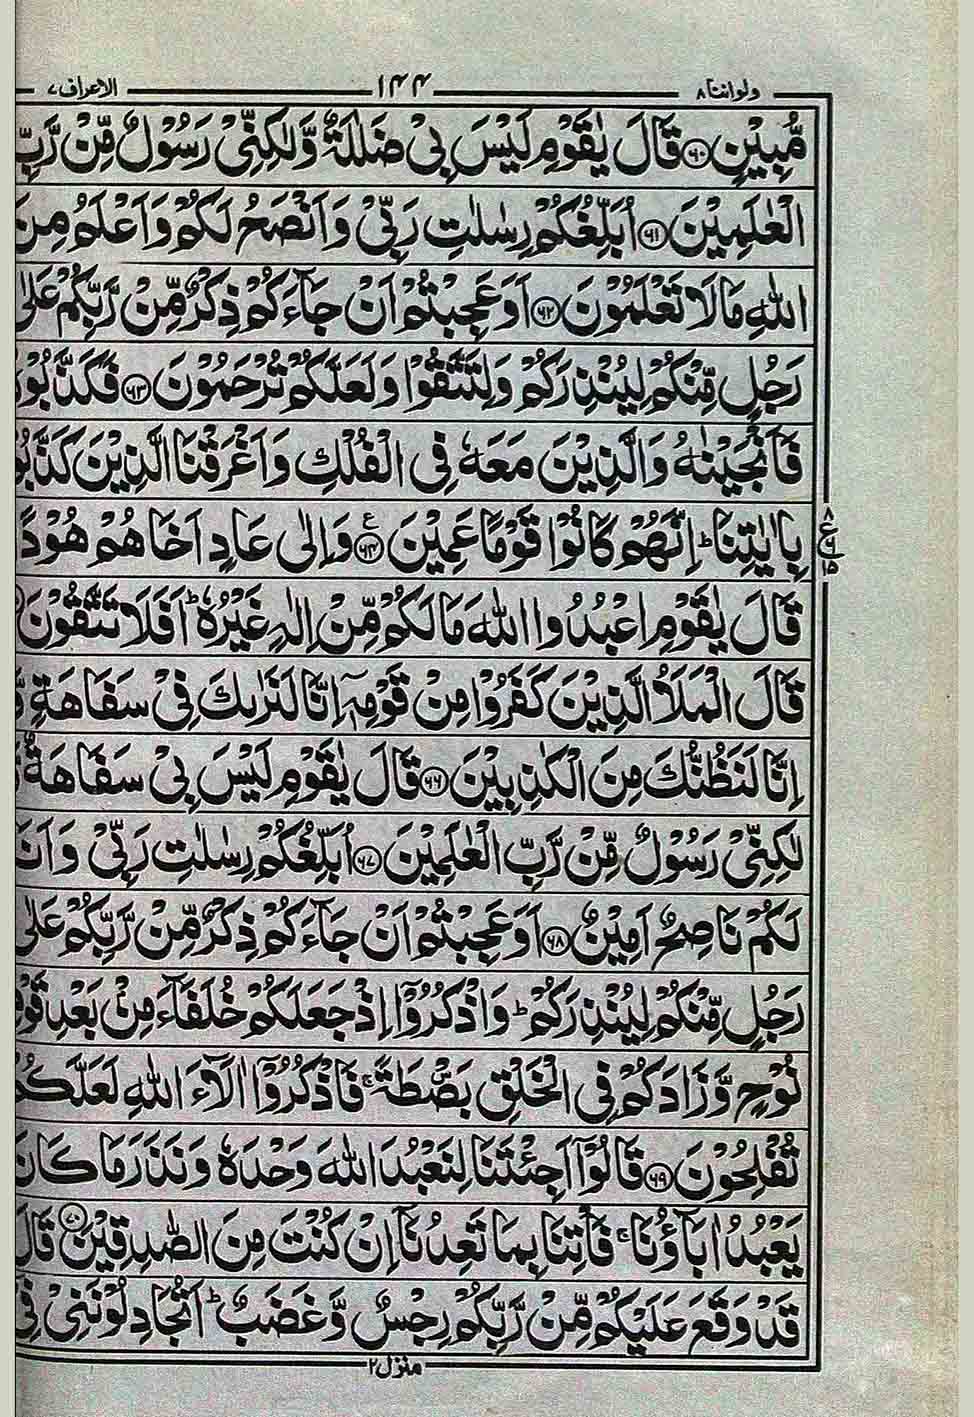 ولواننا ٨ ١٤٤ الاعراف ٧
مُّبِيْنٍ ﴿۶۰﴾ قَالَ يٰقَوْمِ لَيْسَ بِىْ ضَلٰلَةٌ وَّلٰكِنِّىْ رَسُوْلٌ مِّنْ رَّبِّ
الْعٰلَمِيْنَ ﴿۶۱﴾ اُبَلِّغُكُمْ رِسٰلٰتِ رَبِّىْ وَاَنْصَحُ لَكُمْ وَاَعْلَمُ مِنَ
اللّٰهِ مَا لَا تَعْلَمُوْنَ ﴿۶۲﴾ اَوَعَجِبْتُمْ اَنْ جَآءَكُمْ ذِكْرٌ مِّنْ رَّبِّكُمْ عَلٰى
رَجُلٍ مِّنْكُمْ لِيُنْذِرَكُمْ وَلِتَتَّقُوْا وَلَعَلَّكُمْ تُرْحَمُوْنَ ﴿۶۳﴾ فَكَذَّبُوْهُ
فَاَنْجَيْنٰهُ وَالَّذِيْنَ مَعَهٗ فِى الْفُلْكِ وَاَغْرَقْنَا الَّذِيْنَ كَذَّبُوْا
بِاٰيٰتِنَا ؕ اِنَّهُمْ كَانُوْا قَوْمًا عَمِيْنَ ﴿۶۴﴾ ع وَاِلٰى عَادٍ اَخَاهُمْ هُوْدًا
٨ ع ١٥
قَالَ يٰقَوْمِ اعْبُدُوا اللّٰهَ مَا لَكُمْ مِّنْ اِلٰهٍ غَيْرُهٗ ؕ اَفَلَا تَتَّقُوْنَ
قَالَ الْمَلَاُ الَّذِيْنَ كَفَرُوْا مِنْ قَوْمِهٖۤ اِنَّا لَنَرٰىكَ فِىْ سَفَاهَةٍ
اِنَّا لَنَظُنُّكَ مِنَ الْكٰذِبِيْنَ ﴿۶۶﴾ قَالَ يٰقَوْمِ لَيْسَ بِىْ سَفَاهَةٌ
لٰكِنِّىْ رَسُوْلٌ مِّنْ رَّبِّ الْعٰلَمِيْنَ ﴿۶۷﴾ اُبَلِّغُكُمْ رِسٰلٰتِ رَبِّىْ وَاَنَا
لَكُمْ نَاصِحٌ اَمِيْنٌ ﴿۶۸﴾ اَوَعَجِبْتُمْ اَنْ جَآءَكُمْ ذِكْرٌ مِّنْ رَّبِّكُمْ عَلٰى
رَجُلٍ مِّنْكُمْ لِيُنْذِرَكُمْ ؕ وَاذْكُرُوْۤا اِذْ جَعَلَكُمْ خُلَفَآءَ مِنْۢ بَعْدِ قَوْمِ
نُوْحٍ وَّزَادَكُمْ فِى الْخَلْقِ بَصْۜطَةً ۚ فَاذْكُرُوْۤا اٰلَآءَ اللّٰهِ لَعَلَّكُمْ
تُفْلِحُوْنَ ﴿۶۹﴾ قَالُوْۤا اَجِئْتَنَا لِنَعْبُدَ اللّٰهَ وَحْدَهٗ وَنَذَرَ مَا كَانَ
يَعْبُدُ اٰبَآؤُنَا ۚ فَاْتِنَا بِمَا تَعِدُنَاۤ اِنْ كُنْتَ مِنَ الصّٰدِقِيْنَ ﴿۷۰﴾ قَالَ
قَدْ وَقَعَ عَلَيْكُمْ مِّنْ رَّبِّكُمْ رِجْسٌ وَّغَضَبٌ ؕ اَتُجَادِلُوْنَنِىْ فِىْ
منزل ٢